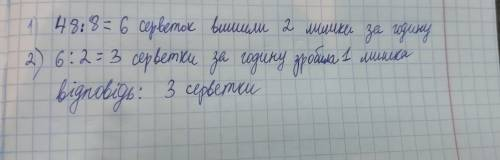 1) 48:8=6 серветок вишили 2 мишки за годину
2) 6:2=3 серветки за годину зробила 1 мишка
відповідь: 3 серветки